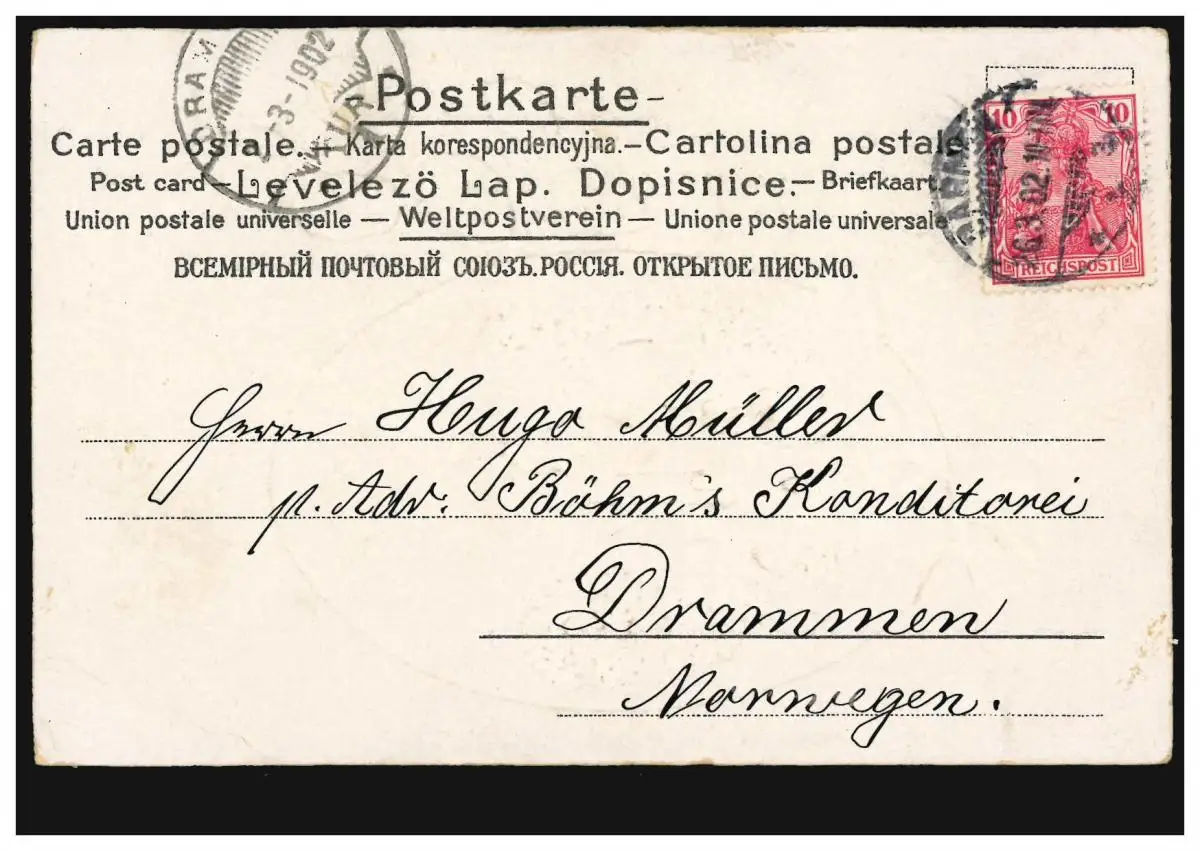 DRAM
3-1902
Postkarte-
Carte postale.—Karta korespondencyjna.—Cartolina postale
Post card—Levelezö Lap. Dopisnice.—Briefkaart.
Union postale universelle — Weltpostverein — Unione postale universale
ВСЕМІРНЫЙ ПОЧТОВЫЙ СОЮЗЪ. РОССІЯ. ОТКРЫТОЕ ПИСЬМО.
10 10
REICHSPOST
Herrn Hugo Müller
p. Adr: Böhm's Konditorei
Drammen
Norwegen.